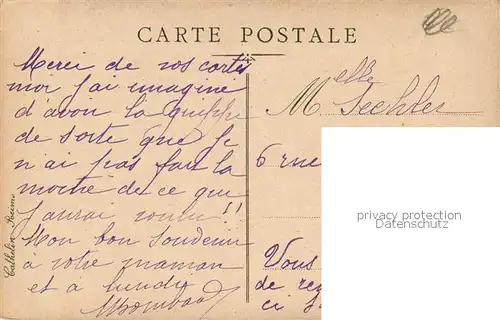 CARTE POSTALE
Merci de vos cartes
moi j'ai imagine
d'avoir la grippe
de sorte que je
n'ai pas fait la
moitié de ce que
j'aurai voulu !!
Mon bon souvenir
à votre maman
et à lundi
Melle
6 rue
Vous
de
ci
privacy protection
Datenschutz
Reims